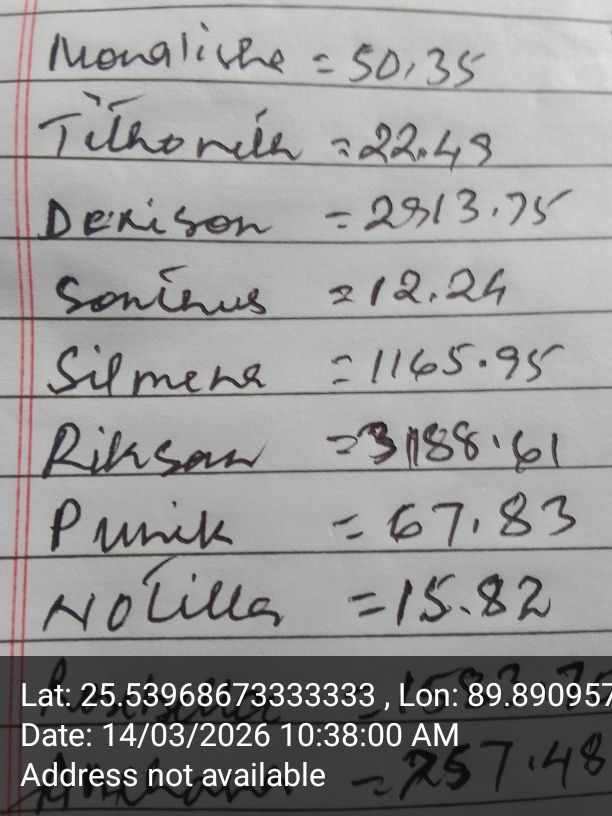 Monalishe = 50.35
Tithonith = 22.49
Denison = 2913.75
Sonthus = 12.24
Silmena = 1165.95
Riksan = 3188.61
Punik = 67.83
Notilla = 15.82
Lat: 25.53968673333333 , Lon: 89.890957
Date: 14/03/2026 10:38:00 AM
Address not available
= 257.48